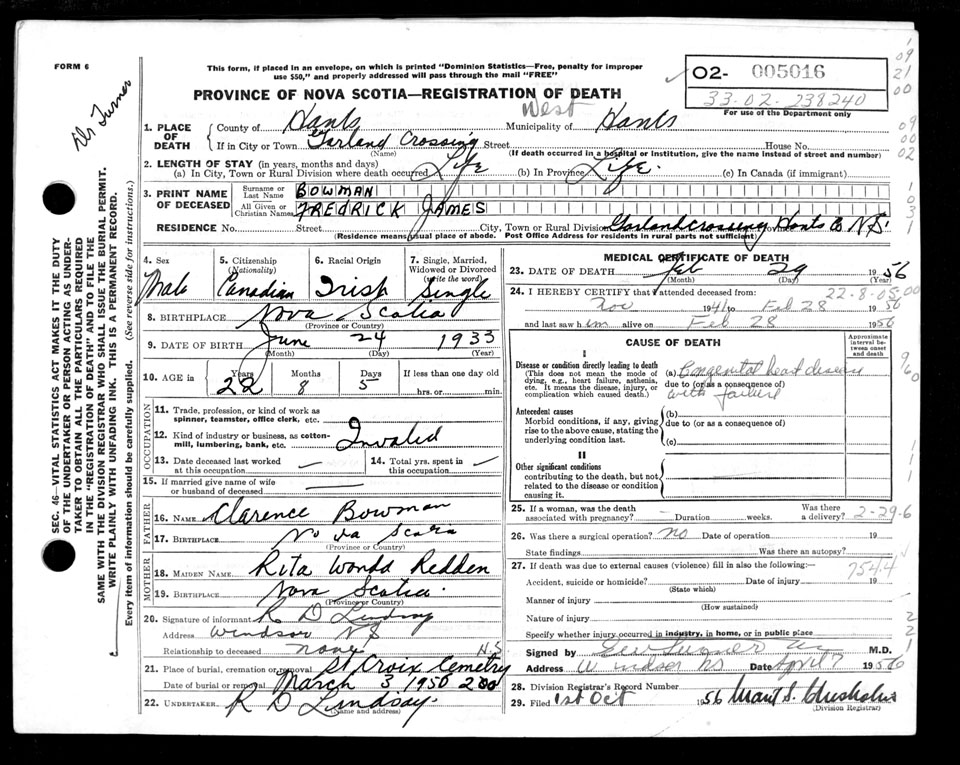 FORM 6
This form, if placed in an envelope, on which is printed "Dominion Statistics—Free, penalty for improper
use $50," and properly addressed will pass through the mail "FREE"
02- 005016
33.02.238240
For use of the Department only
PROVINCE OF NOVA SCOTIA—REGISTRATION OF DEATH
Turner
1. PLACE OF DEATH
County of Hants
Municipality of West Hants
If in City or Town Garland Crossing Street House No.
(Name) (If death occurred in a hospital or institution, give the name instead of street and number)
2. LENGTH OF STAY (in years, months and days)
(a) In City, Town or Rural Division where death occurred Life (b) In Province Life. (c) In Canada (if immigrant)
3. PRINT NAME OF DECEASED
Surname or Last Name BOWMAN
All Given or Christian Names FREDRICK JAMES
RESIDENCE No. Street City, Town or Rural Division Garland crossing Province Hants Co N.S.
(Residence means usual place of abode. Post Office Address for residents in rural parts not sufficient)
4. Sex Male
5. Citizenship (Nationality) Canadian
6. Racial Origin Irish
7. Single, Married, Widowed or Divorced (write the word) Single
8. BIRTHPLACE Nova Scotia
(Province or Country)
9. DATE OF BIRTH June 24 1933
(Month) (Day) (Year)
10. AGE in Years 22 Months 8 Days 5 If less than one day old hrs. or min.
OCCUPATION
11. Trade, profession, or kind of work as spinner, teamster, office clerk, etc.
12. Kind of industry or business, as cotton-mill, lumbering, bank, etc. Invaled
13. Date deceased last worked at this occupation —
14. Total yrs. spent in this occupation —
15. If married give name of wife or husband of deceased —
FATHER
16. NAME Clarence Bowman
17. BIRTHPLACE Nova Scotia
(Province or Country)
MOTHER
18. MAIDEN NAME Rita Wonda Redden
19. BIRTHPLACE Nova Scotia
(Province or Country)
20. Signature of informant R D Lindsay
Address Windsor NS
Relationship to deceased none
21. Place of burial, cremation or removal St Croix Cemetry N.S
Date of burial or removal March 3 1950 200
22. UNDERTAKER R D Lindsay.
(Name and address)
MEDICAL CERTIFICATE OF DEATH
23. DATE OF DEATH Feb 29 1956
(Month) (Day)
22-8-05-00
24. I HEREBY CERTIFY that I attended deceased from:
Nov 1941 to Feb 28 1956
and last saw him alive on Feb 28 1956
CAUSE OF DEATH
Approximate interval between onset and death
I
Disease or condition directly leading to death
(This does not mean the mode of dying, e.g., heart failure, asthenia, etc. It means the disease, injury, or complication which caused death.)
(a) Congenital heart disease
due to (or as a consequence of)
with failure
Antecedent causes
Morbid conditions, if any, giving rise to the above cause, stating the underlying condition last.
(b)
due to (or as a consequence of)
(c)
II
Other significant conditions
contributing to the death, but not related to the disease or condition causing it.
25. If a woman, was the death associated with pregnancy? — Duration weeks. Was there a delivery? 2-29-6
26. Was there a surgical operation? no Date of operation 19
State findings Was there an autopsy?
27. If death was due to external causes (violence) fill in also the following:—
7544
Accident, suicide or homicide? Date of injury 19
(State which)
Manner of injury
(How sustained)
Nature of injury
Specify whether injury occurred in industry, in home, or in public place
Signed by M.D.
Address Windsor NS Date April 7 1956
28. Division Registrar's Record Number
29. Filed 1st Oct 1956
(Division Registrar)
SEC. 46—VITAL STATISTICS ACT MAKES IT THE DUTY
OF THE UNDERTAKER OR PERSON ACTING AS UNDER-
TAKER TO OBTAIN ALL THE PARTICULARS REQUIRED
IN THE "REGISTRATION OF DEATH" AND TO FILE THE
SAME WITH THE DIVISION REGISTRAR WHO SHALL ISSUE THE BURIAL PERMIT.
WRITE PLAINLY WITH UNFADING INK. THIS IS A PERMANENT RECORD.
Every item of information should be carefully supplied. (See reverse side for instructions.)